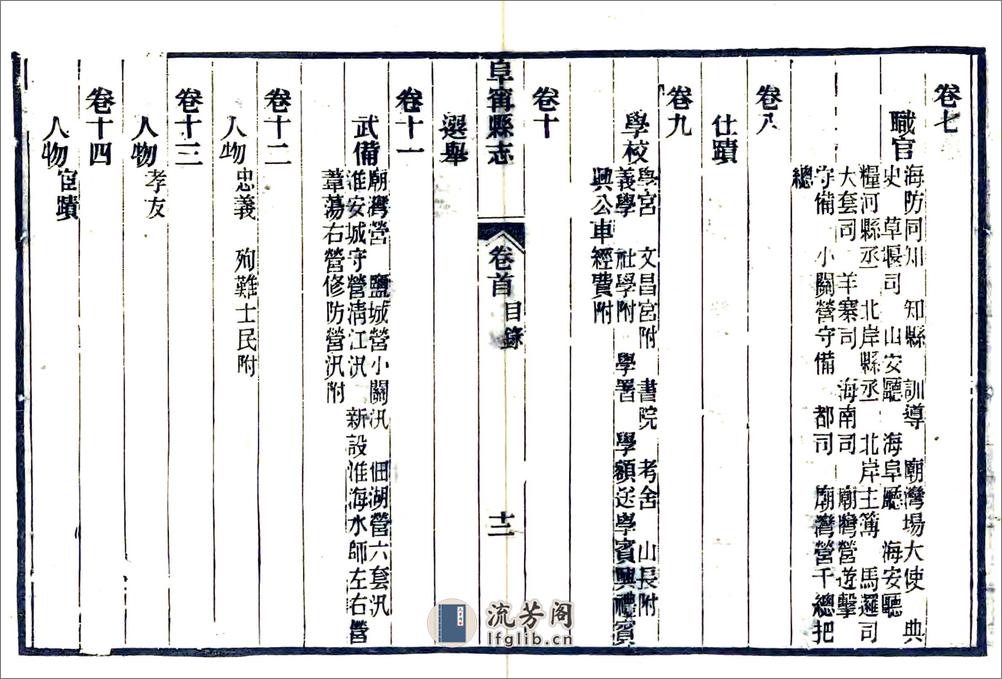 卷七
職官
海防同知　知縣　訓導　廟灣場大使　典
史　草堰司　山安廳　海阜廳　海安廳
糧河縣丞　北岸縣丞　北岸主簿　馬邏司
大套司　羊寨司　海南司　廟灣營遊擊
守備　小關營守備　都司　廟灣營千總把
總
卷八
仕蹟
卷九
學校
學宮　文昌宮附　書院　考舍　山長附
義學　社學附　學署　學額送學賓興禮賓
興公車經費附
卷十
阜寗縣志
卷首
目錄
十二
選舉
卷十一
武備
廟灣營　鹽城營小關汛　佃湖營六套汛
淮安城守營清江汛　新設淮海水師左右營
葦蕩右營修防營汛附
卷十二
人物
忠義　殉難士民附
卷十三
人物
孝友
卷十四
人物
宦蹟
流芳阁
lfglib.cn